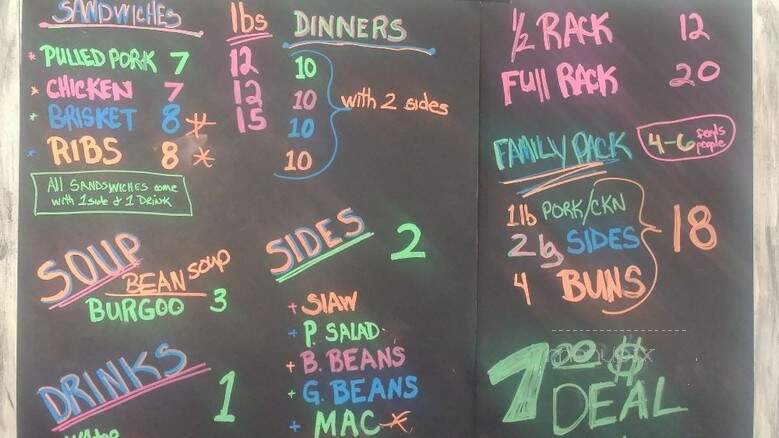 SANDWICHES lbs DINNERS
* PULLED PORK 7 12 10
* CHICKEN 7 12 10
* BRISKET 8 * 15 10
* RIBS 8 * 10
with 2 sides
All SANDSWICHES come
with 1 side & 1 DRINK
SOUP
BEAN soup
BURGOO 3
DRINKS 1
SIDES 2
+ SlAW
+ P. SALAD
+ B. BEANS
+ G. BEANS
+ MAC *
1/2 RACK 12
FUll RACK 20
FAMILY PACK
4-6 feeds people
1lb PORK/CKN
2 lg SIDES 18
4 BUNS
7.00 $
DEAL